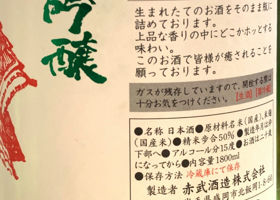 吟醸
生まれたてのお酒をそのまま瓶に
詰めております。
上品な香りの中にどこかホッとする
味わい。
このお酒で皆様が癒されることを
願っております。
ガスが残存していますので、開栓する際は
十分お気をつけください。
●名称 日本酒●原材料名 米(国産)、米麹
(国産米)●精米歩合50%
下部へ●アルコール分15度
になっています●内容量1800ml
●保存方法 冷蔵庫にて保存
製造者 赤武酒造株式会社
岩手県盛岡市北飯岡1-8-60